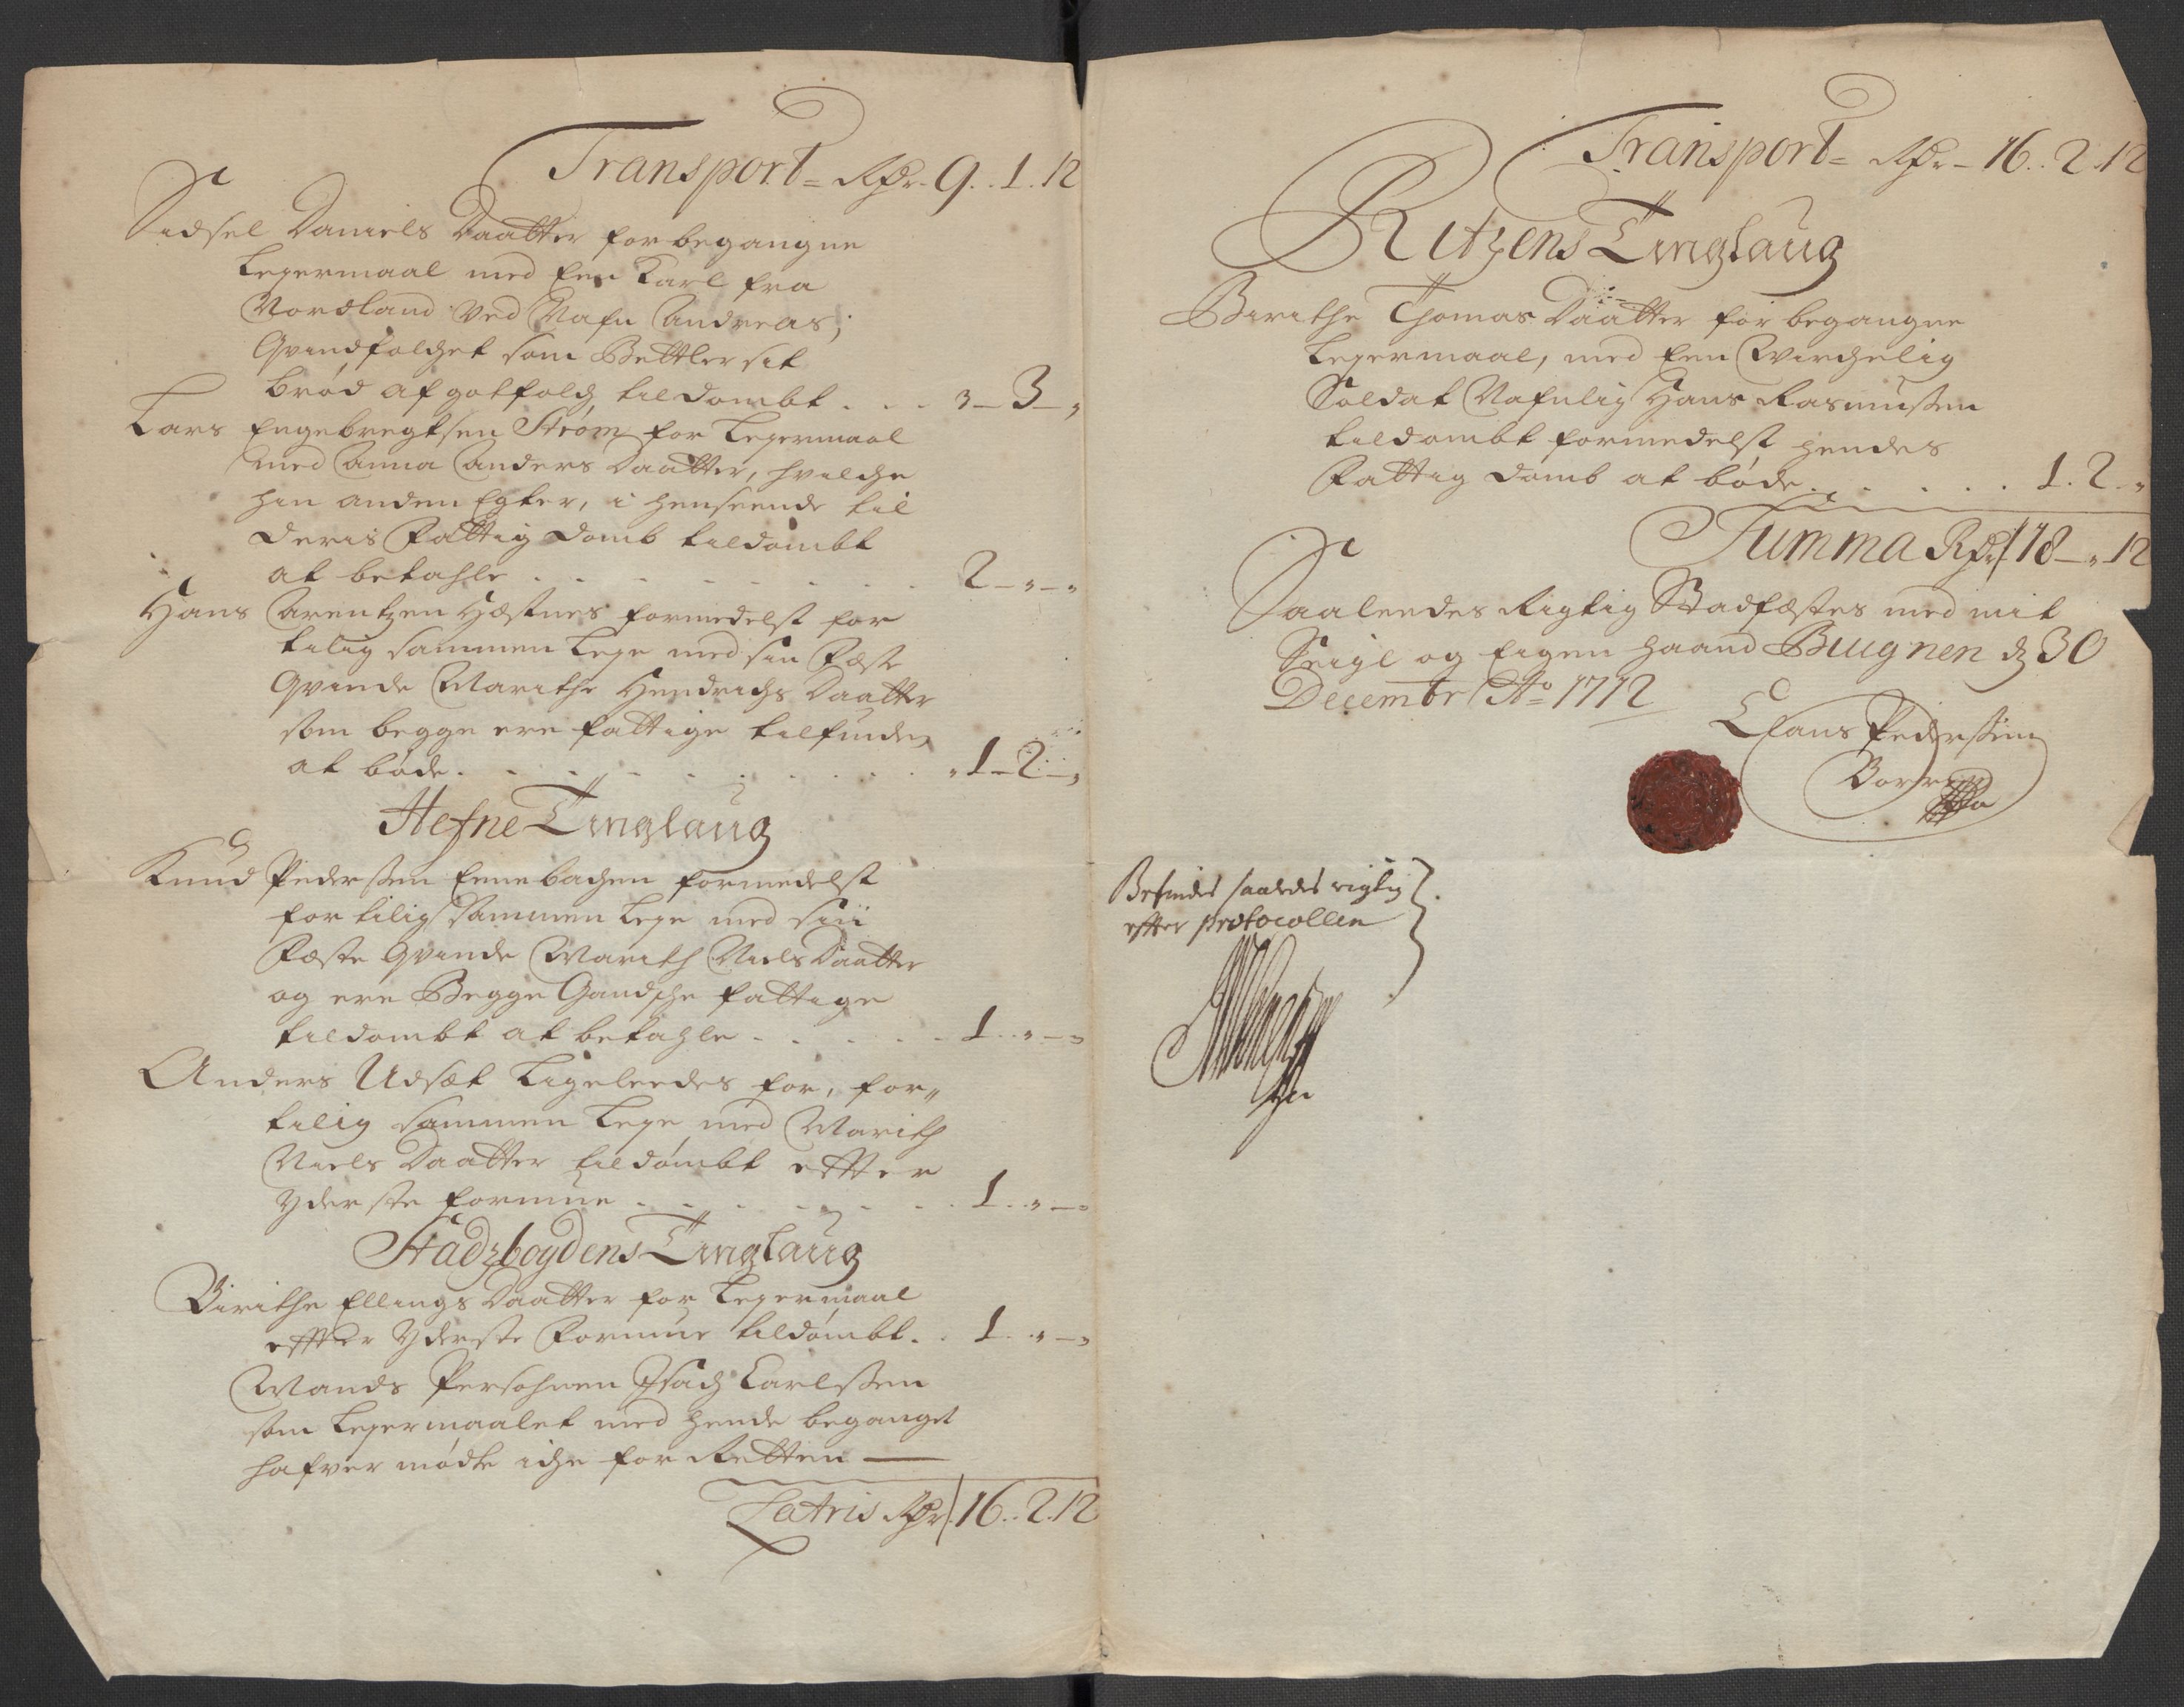 Transport = Rdr. 9..1.12
Sidsel Daniels Daatter for begangne
Leyermaal med Een Karl fra
Nordland ved Nafn Andreas,
Qvindfolchet som Bettler sit
brød af gotfolch tildømbt . . . „ – 3 – „
Lars Engebregtsen Strøm for Leyermaal
med Anna Anders Daatter, hvilche
hin anden Egter, i henseende til
deris Fattigdomb tildømbt
at betahle . . . . . . . 2 – „ – „
Hans Arentzen Hæstnes formedelst for
tilig sammen Leye med sin Fæste
Qvinde Marithe Hendrichs Daatter
som begge ere fattige tilfunden
at bøde . . . . . . . . „ 1 – 2 – „
Hefne Tinglaug
Knud Pedersen Ennebachen formedelst
for tilig sammen Leye med sin
Fæste Qvinde Marith Niels Daatter
og ere Begge Gandsche fattige
tildømbt at betahle . . . . . 1 .. „ – „
Anders Udsæt Ligeleedes for, for„
tilig sammen Leye med Marith
Niels Daatter tildømbt effter
yderste formue . . . . . . 1 .. „ – „
Stadzboydens Tinglaug
Birithe Ellings Daatter for Leyermaal
effter yderste Formue tildømbt . . 1 .. „ – „
Mands Persohnen Isach Carlssen
som Leyermaalet med hende beganget
hafver mødte iche for Retten —
Latris Rdr 16..2.12
Transport = Rdr – 16..2.12
Ritzens Tinglaug
Birithe Thomas Daatter for begangne
Leyermaal, med Een Wirchelig
Soldat Nafnlig Hans Rasmussen
tildømbt formedelst hendes
Fattigdomb at bøde . . . . . 1.2.„
Summa Rdr 18 – „ 12
Saaleedes Rigtig Stadfæstes med mit
Seigl og Eigen haand Biugnen d 30
Decembr Ao 1712
Claus Pederssen
Befindes saaledes rigtig
effter protocollen